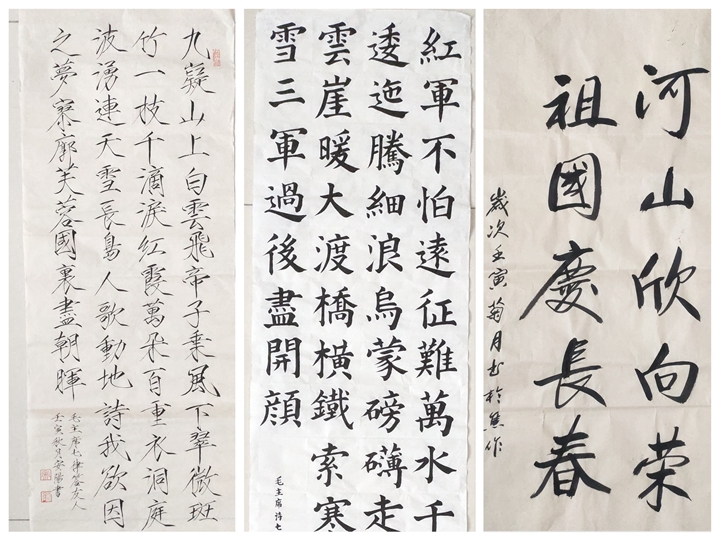 九疑山上白雲飛帝子乘風下翠微斑
竹一枝千滴淚紅霞萬朵百重衣洞庭
波湧連天雪長島人歌動地詩我欲因
之夢寥廓芙蓉國裏盡朝暉
毛主席七律答友人
壬寅秋書
紅軍不怕遠征難萬水千
逶迤騰細浪烏蒙磅礴走
雲崖暖大渡橋橫鐵索寒
雪三軍過後盡開顏
毛主席詩七
河山欣向荣
祖國慶長春
歲次壬寅菊月书於焦作